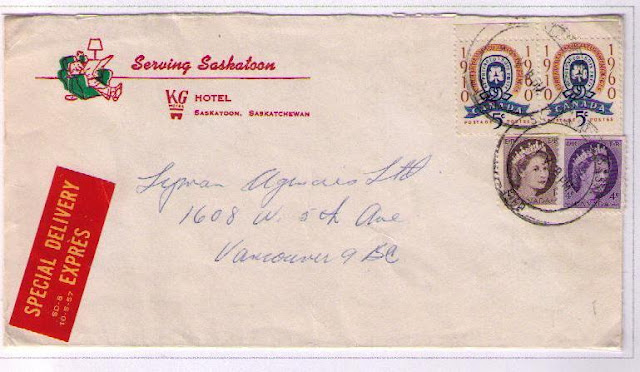 Serving Saskatoon
KG HOTEL
SASKATOON, SASKATCHEWAN
1910 1960
CANADA
5¢
POSTAGE POSTES
1910 1960
CANADA
5¢
POSTAGE POSTES
4¢
SPECIAL DELIVERY
EXPRÈS
SD-8
10-9-57
Lipman Agencies Ltd
1608 W. 5th Ave
Vancouver 9 BC